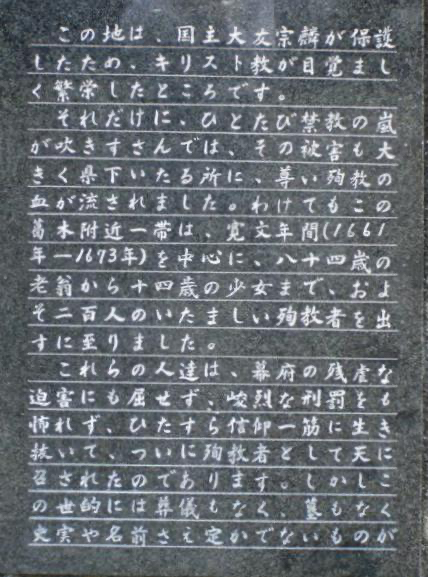 この地は、国主大友宗麟が保護
したため、キリスト教が目覚まし
く繁栄したところです。
それだけに、ひとたび禁教の嵐
が吹きすさんでは、その被害も大
きく県下いたる所に、尊い殉教の
血が流されました。わけてもこの
葛木附近一帯は、寛文年間(1661
年ー1673年)を中心に、八十四歳の
老翁から十四歳の少女まで、およ
そ二百人のいたましい殉教者を出
すに至りました。
これらの人達は、幕府の残虐な
迫害にも屈せず、峻烈な刑罰をも
怖れず、ひたすら信仰一筋に生き
抜いて、ついに殉教者として天に
召されたのであります。しかしこ
の世的には葬儀もなく、墓もなく
史実や名前さえ定かでないものが